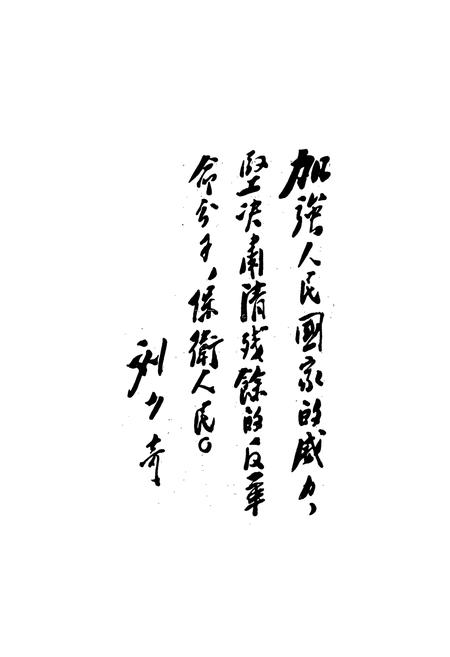 加强人民國家的威力，
堅决肃清残餘的反革
命分子，保衛人民。
刘少奇